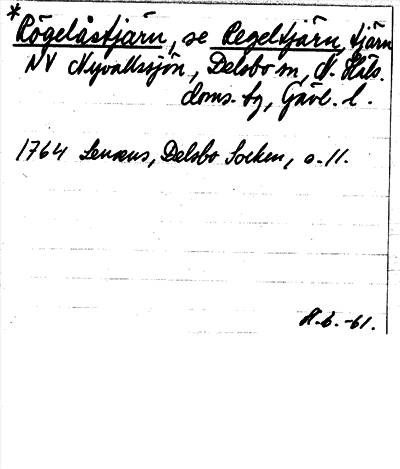 *
Rögelåstjärn, se Regeltjärn, tjärn
NV Nyvallssjön, Delsbo sn, N. Häls.
doms.-bg, Gävl. l.
1764 Lenæus, Delsbo Socken, s. 11.
H.b. -61.